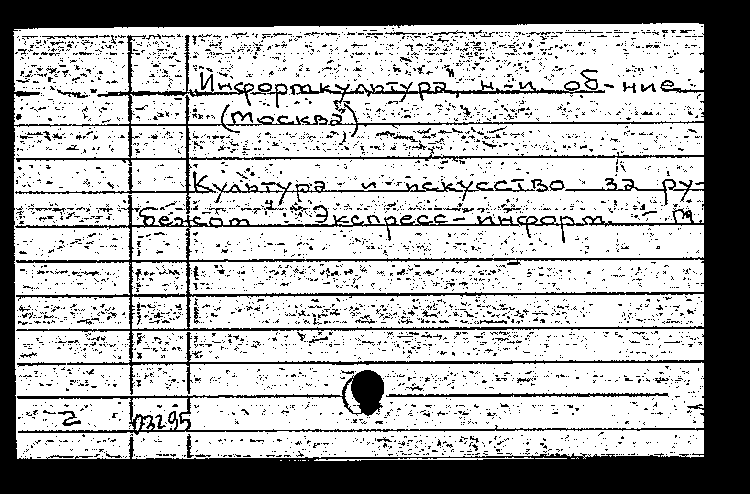 "Информкультура", н.-и. об-ние
(Москва)
Культура и искусство за ру-
бежом : Экспресс-информ. - М.
2 03295